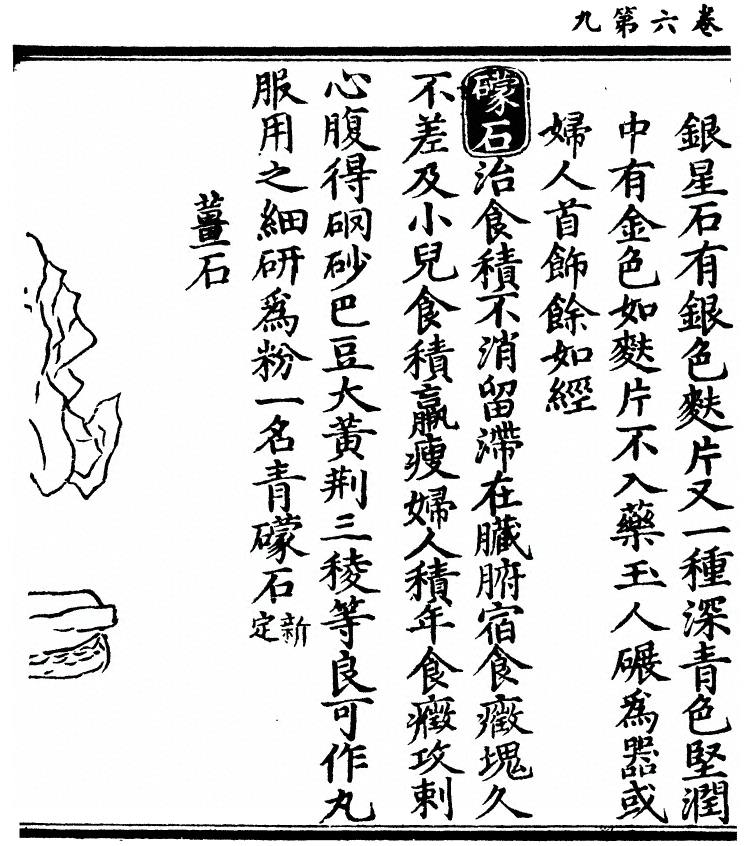 卷六第九
銀星石有銀色麩片又一種深青色堅潤
中有金色如麩片不入藥玉人碾爲器或
婦人首飾餘如經
礞石治食積不消留滯在臟腑宿食癥塊久
不差及小兒食積羸瘦婦人積年食癥攻刺
心腹得硇砂巴豆大黃荆三稜等良可作丸
服用之細硏爲粉一名青礞石新定
薑石